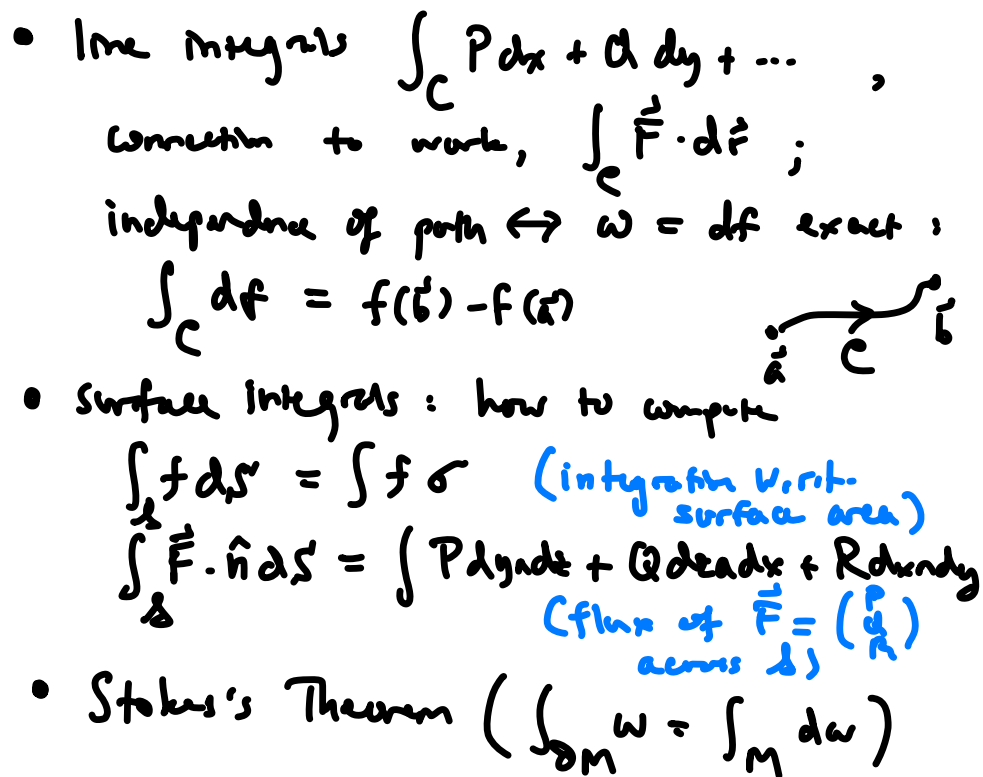 • line integrals ∫_C P dx + Q dy + ... ,
connection to work, ∫_C F⃗ · dr⃗ ;
independence of path ↔ ω = df exact :
∫_C df = f(b⃗) - f(a⃗)
a⃗ C b⃗
• surface integrals : how to compute
∫_S f dS = ∫ f σ (integration w.r.t.
surface area)
∫_S F⃗ · n̂ dS = ∫ P dy∧dz + Q dz∧dx + R dx∧dy
(flux of F⃗ = (P Q R)
across S)
• Stokes's Theorem ( ∫_∂M ω = ∫_M dω )